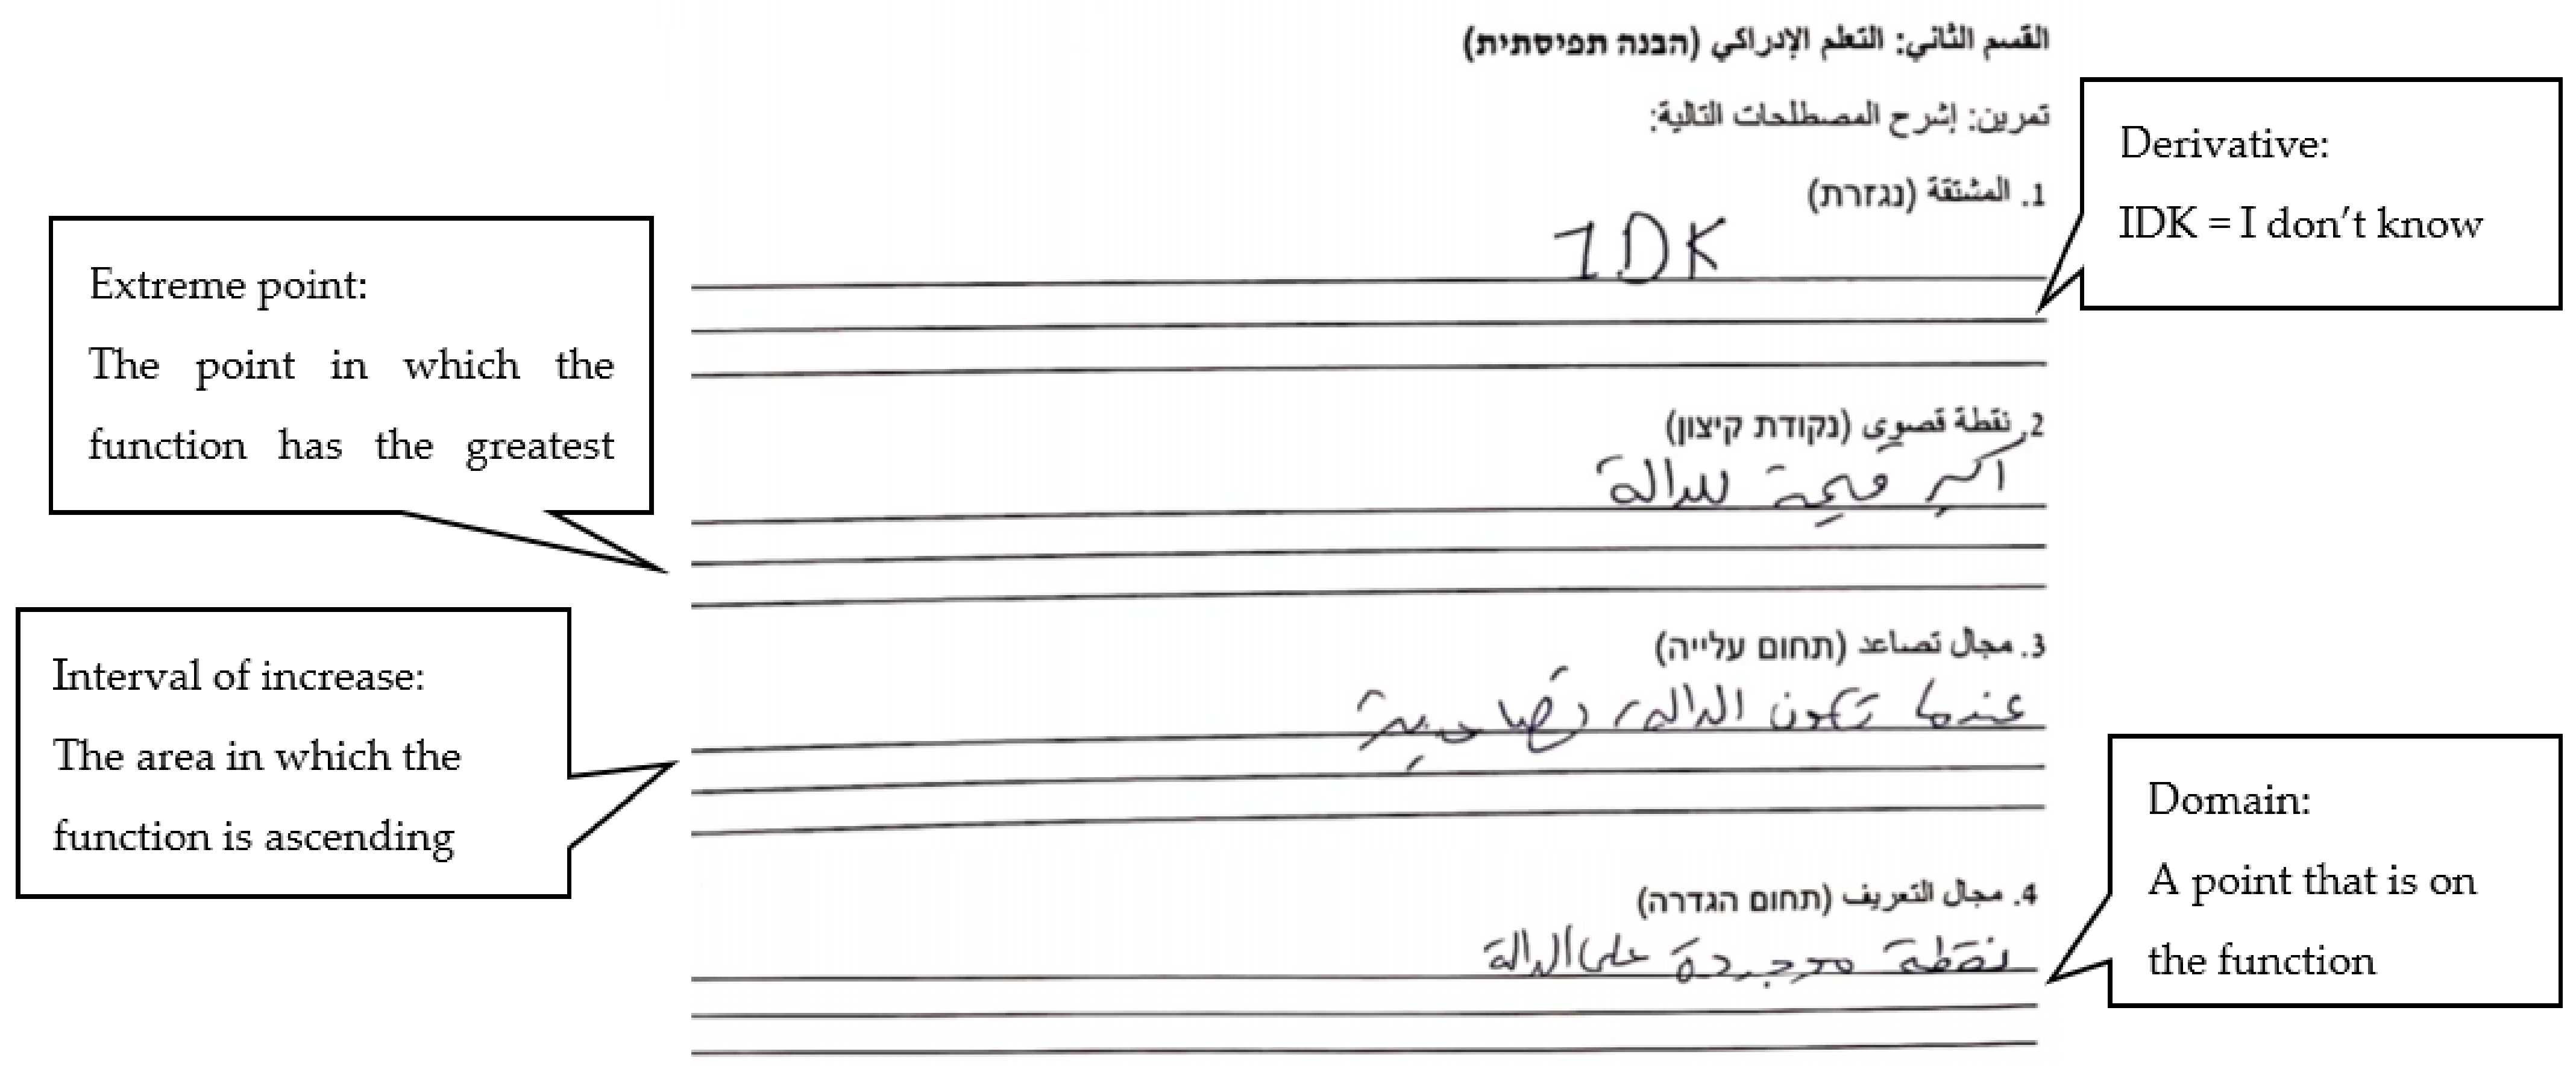 القسم الثاني: التعلم الإدراكي (הבנה תפיסתית)
تمرين: إشرح المصطلحات التالية:
1. المشتقة (נגזרת)
IDK
2. نقطة قصوى (נקודת קיצון)
اكبر قيمة للدالة
3. مجال تصاعد (תחום עלייה)
عندما تكون الدالة تصاعدية
4. مجال التعريف (תחום הגדרה)
نقطة موجودة على الدالة
Derivative:
IDK = I don't know
Extreme point:
The point in which the
function has the greatest
Interval of increase:
The area in which the
function is ascending
Domain:
A point that is on
the function